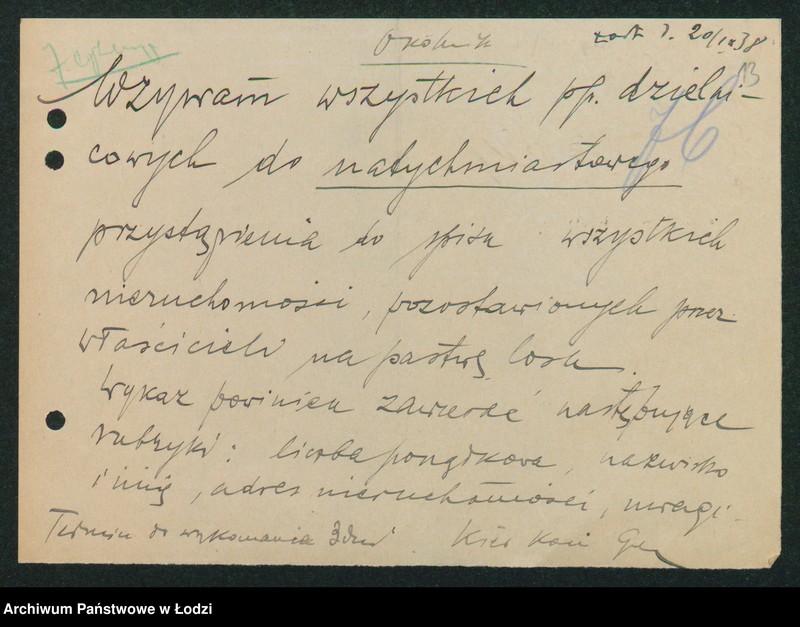 Okólnik
20/IX 38
13
76
Wzywam wszystkich pp. dzielni-
cowych do natychmiastowego
przystąpienia do spisu wszystkich
nieruchomości, pozostawionych przez
właścicieli na pastwę losu.
Wykaz powinien zawierać następujące
rubryki: liczba porządkowa, nazwisko
i imię, adres nieruchomości, uwagi.
Termin do wykonania 3 dni
Kier Kom
Archiwum Państwowe w Łodzi